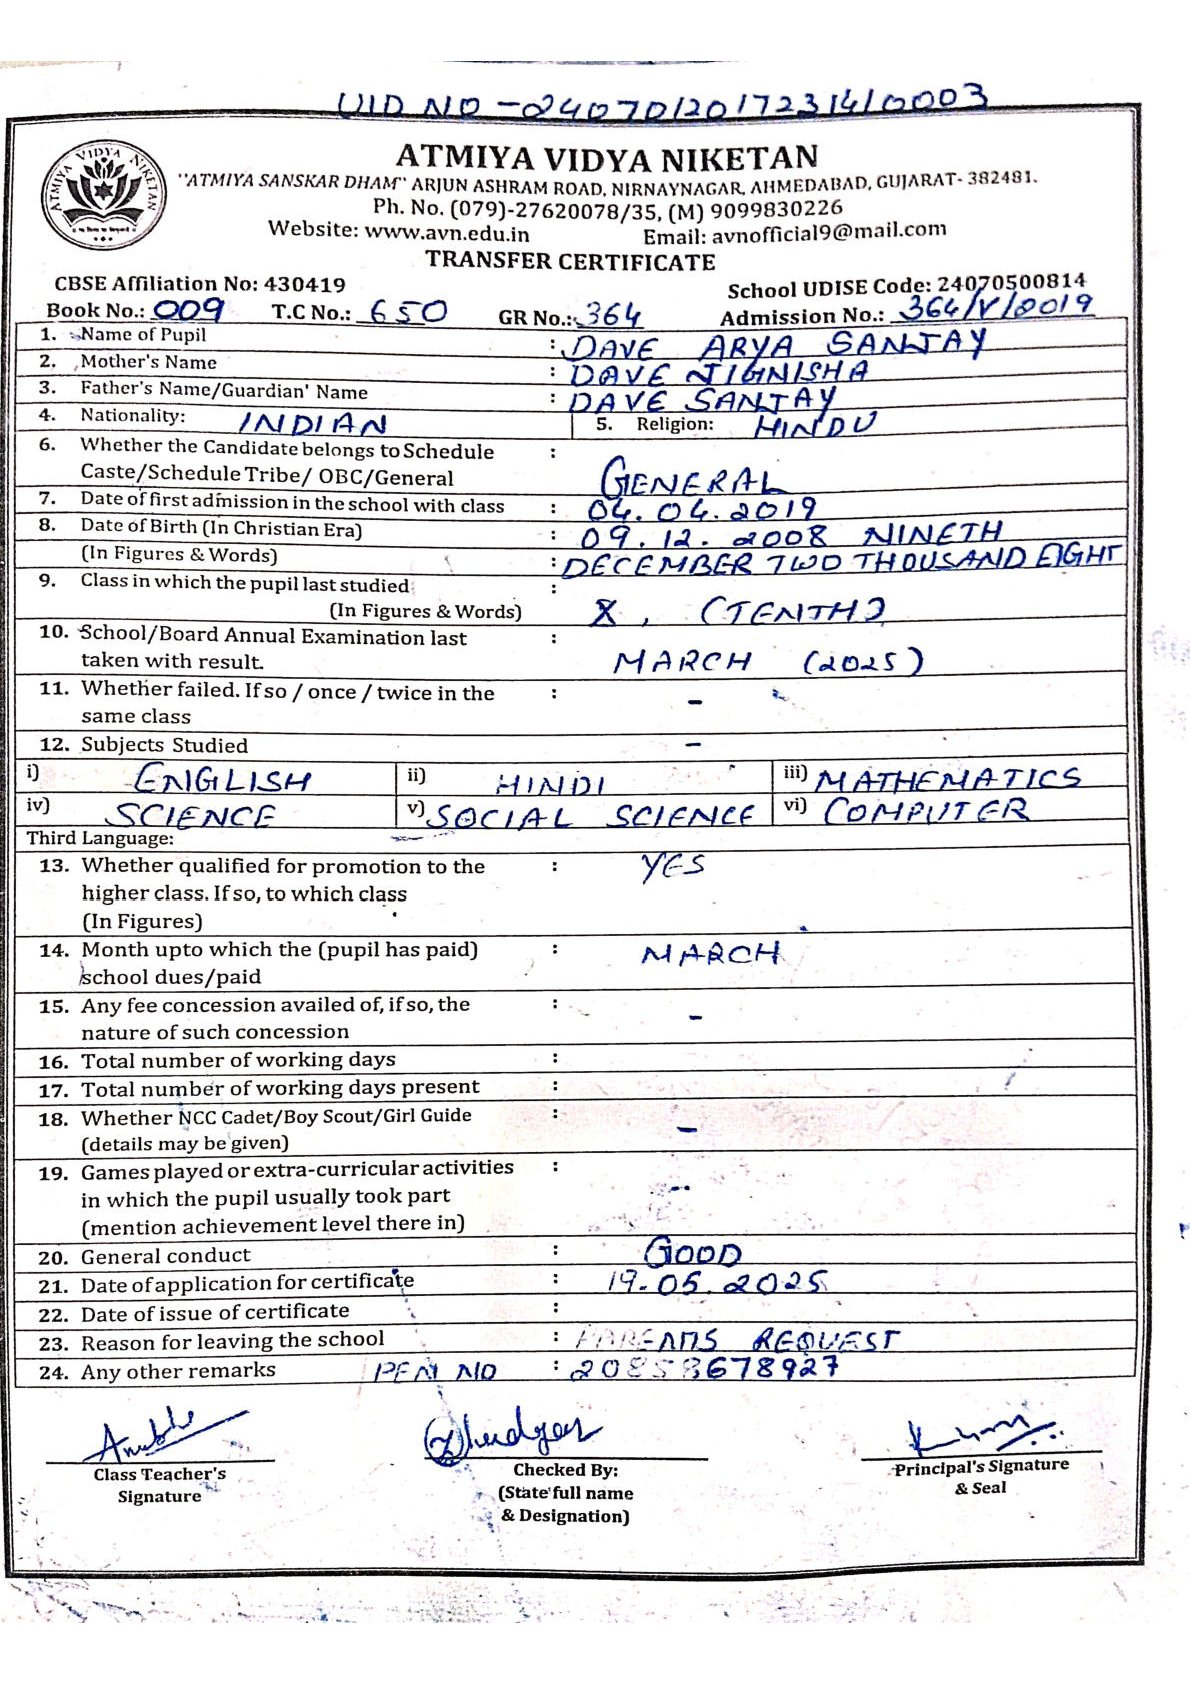 UID NO - 24070120172314/0003
ATMIYA VIDYA NIKETAN
ATMIYA VIDYA NIKETAN
"ATMIYA SANSKAR DHAM" ARJUN ASHRAM ROAD, NIRNAYNAGAR, AHMEDABAD, GUJARAT- 382481.
Ph. No. (079)-27620078/35, (M) 9099830226
Website: www.avn.edu.in Email: avnofficial9@mail.com
TRANSFER CERTIFICATE
CBSE Affiliation No: 430419 School UDISE Code: 24070500814
Book No.: 009 T.C No.: 650 GR No.: 364 Admission No.: 364/V/2019
1. Name of Pupil : DAVE ARYA SANJAY
2. Mother's Name : DAVE JIGNISHA
3. Father's Name/Guardian' Name : DAVE SANJAY
4. Nationality: INDIAN 5. Religion: HINDU
6. Whether the Candidate belongs to Schedule :
Caste/Schedule Tribe/ OBC/General GENERAL
7. Date of first admission in the school with class : 04.04.2019
8. Date of Birth (In Christian Era) : 09.12.2008 NINETH
(In Figures & Words) : DECEMBER TWO THOUSAND EIGHT
9. Class in which the pupil last studied :
(In Figures & Words) X, (TENTH)
10. School/Board Annual Examination last :
taken with result. MARCH (2025)
11. Whether failed. If so / once / twice in the : -
same class
12. Subjects Studied -
i) ENGLISH ii) HINDI iii) MATHEMATICS
iv) SCIENCE v) SOCIAL SCIENCE vi) COMPUTER
Third Language:
13. Whether qualified for promotion to the : YES
higher class. If so, to which class
(In Figures)
14. Month upto which the (pupil has paid) : MARCH
school dues/paid
15. Any fee concession availed of, if so, the : -
nature of such concession
16. Total number of working days :
17. Total number of working days present :
18. Whether NCC Cadet/Boy Scout/Girl Guide : -
(details may be given)
19. Games played or extra-curricular activities :
in which the pupil usually took part --
(mention achievement level there in)
20. General conduct : GOOD
21. Date of application for certificate : 19.05.2025
22. Date of issue of certificate :
23. Reason for leaving the school : PARENTS REQUEST
24. Any other remarks PEN NO : 20858678927
Class Teacher's
Signature
Checked By:
(State full name
& Designation)
Principal's Signature
& Seal